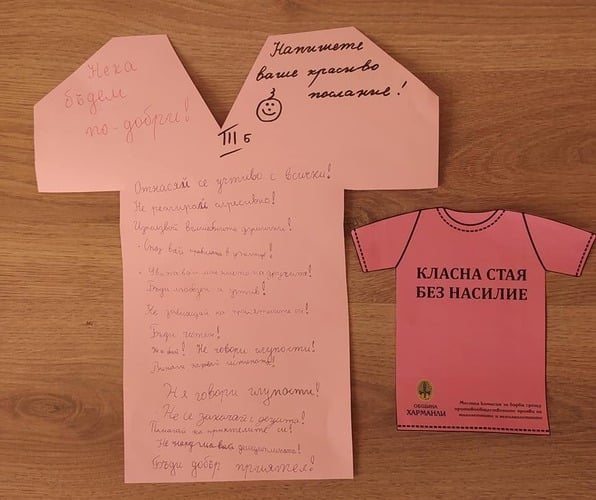 Нека
бъдем
по-добри!
Напишете
ваше красиво
послание!
III б
Отнасяй се учтиво с всички!
Не реагирай агресивно!
Използвай вълшебните думички!
- Спазвай правилата в училище!
- Уважавай мнението на другите!
Бъди любезен и учтив!
Не завиждай на приятелите си!
Бъди честен!
Не говори глупости!
Не говори глупости!
Не се закачай с децата!
Помагай на приятелите си!
Не
Бъди добър приятел!
КЛАСНА СТАЯ
БЕЗ НАСИЛИЕ
ОБЩИНА
ХАРМАНЛИ
Местна комисия за борба срещу
противообществените прояви на
малолетните и непълнолетните